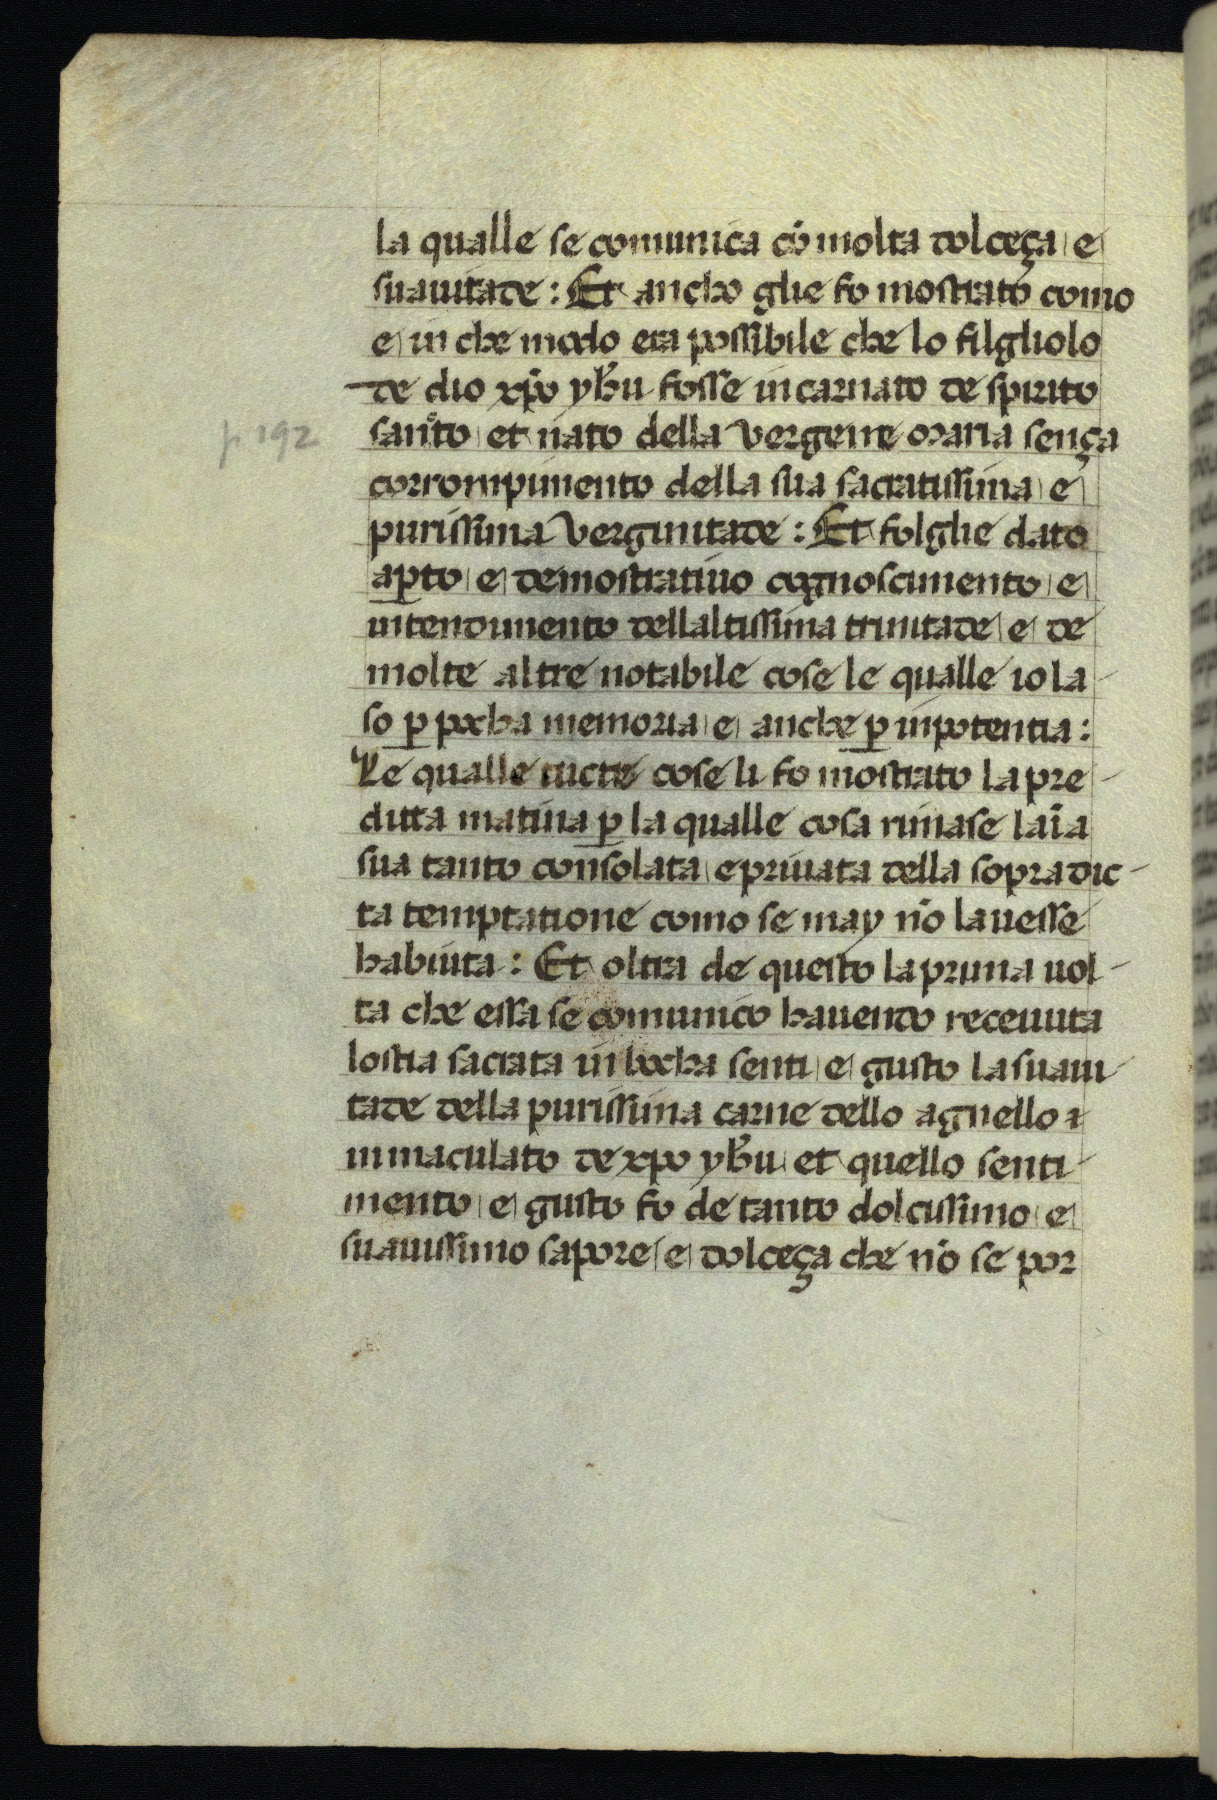 la qualle se comunica cō molta dolceça e
suauitade : Et ancho glie fo mostrato como
e in che modo era possibile che lo filgliolo
de dio xp̄o yh̄u fosse incarnato de spirito
p. 192
san̄to et nato della vergene maria sença
corrompimento della sua sacratissima e
purissima verginitade : Et folglie dato
ap̱to e demostratiuo cognoscimento e
intendimento dellaltissima trinitade e de
molte altre notabile cose le qualle io la-
so p̱ pocha memoria e anche p̱ inpotentia :
Le qualle tucte cose li fo mostrato la pre-
ditta matina p̱ la qualle cosa rimase laīa
sua tanto consolata e priuata della sopradic-
ta temptatione como se may nō lauesse
habiuta : Et oltra de questo la prima uol-
ta che essa se comunico hauendo receuuta
lostia sacrata in bocha senti e gusto la suaui-
tade della purissima carne dello agnello
inmaculato de xp̄o yh̄u et quello senti-
mento e gusto fo de tanto dolcissimo e
suauissimo sapore e dolceça che nō se por